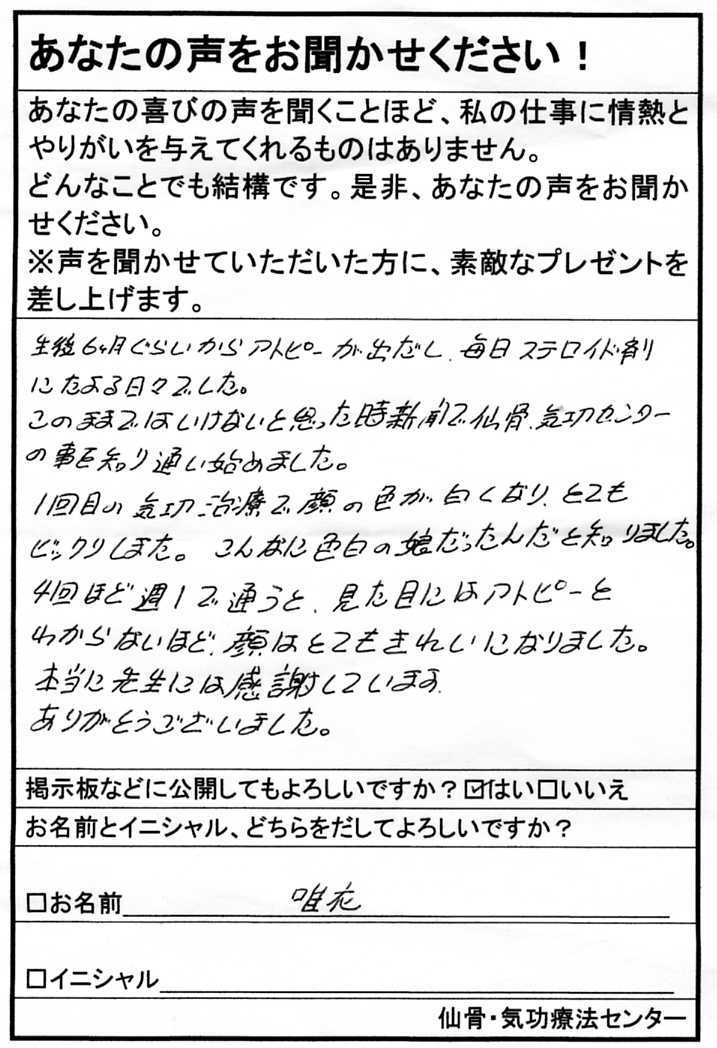 あなたの声をお聞かせください！
あなたの喜びの声を聞くことほど、私の仕事に情熱と
やりがいを与えてくれるものはありません。
どんなことでも結構です。是非、あなたの声をお聞か
せください。
※声を聞かせていただいた方に、素敵なプレゼントを
差し上げます。
生後6ヶ月ぐらいからアトピーが出だし、毎日ステロイド剤
にたよる日々でした。
このままではいけないと思った時新聞で仙骨、気功センター
の事を知り通い始めました。
1回目の気功治療で顔の色が白くなり、とても
ビックリしました。こんなに色白の娘だったんだと知りました。
4回ほど週1で通うと、見た目にはアトピーと
わからないほど、顔はとてもきれいになりました。
本当に先生には感謝しています。
ありがとうございました。
掲示板などに公開してもよろしいですか？☑はい□いいえ
お名前とイニシャル、どちらをだしてよろしいですか？
□お名前 唯衣
□イニシャル
仙骨・気功療法センター